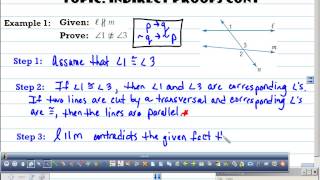 TOPIC: INDIRECT PROOFS CONT
Example 1: Given: ℓ ∦ m
Prove: ∠1 ≇ ∠3
p → q
~q → ~p
1
2
3
ℓ
m
Step 1: Assume that ∠1 ≅ ∠3
Step 2: If ∠1 ≅ ∠3, then ∠1 and ∠3 are corresponding ∠'s.
If two lines are cut by a transversal and corresponding ∠'s
are ≅, then the lines are parallel.
Step 3: ℓ ∥ m contradicts the given fact th